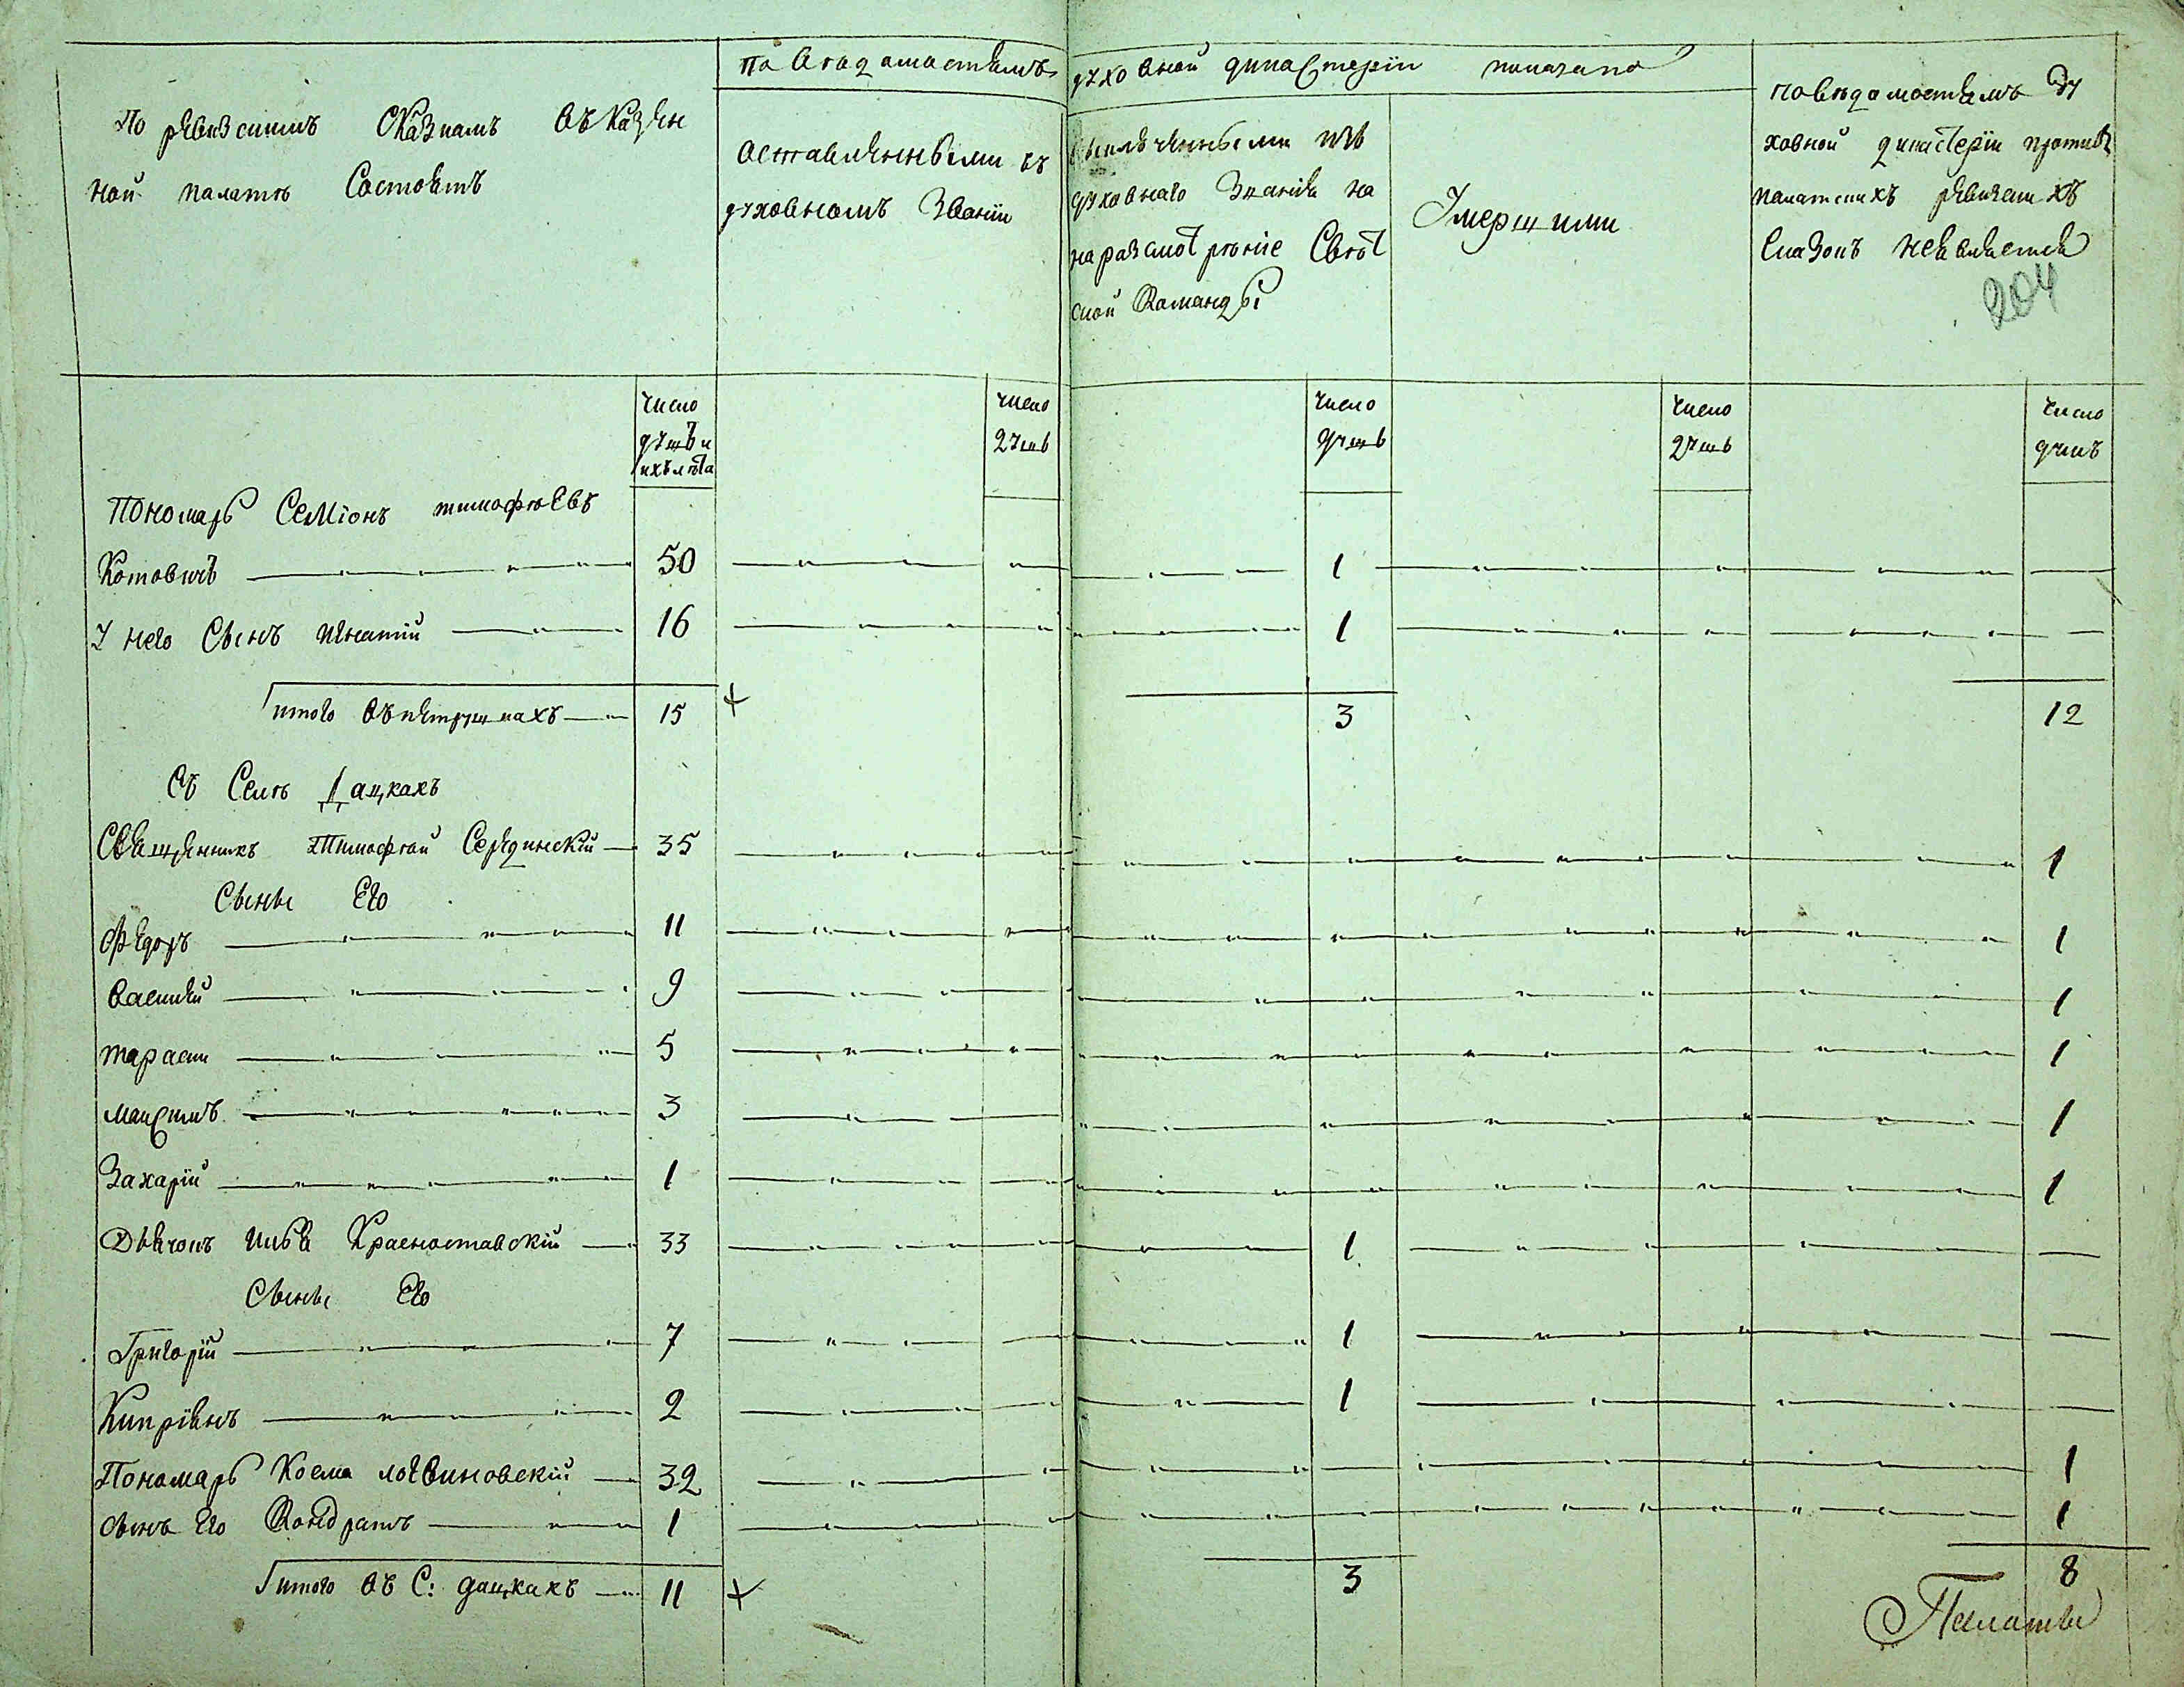 По ревизскимъ Сказкамъ въ казен
ной палате Состоитъ
По ведомостямъ духовной дикастерїи показано
Оставленными въ
духовномъ Званїи
изъ
духовнаго Званія на
на разсмотренїе Свет
ской Команды
Умершими
по ведомостямъ Ду
ховной дикастерїи противъ
палатскихъ ревизскихъ
Сказокъ неявляется
204
Число
душъ и
ихъ лѣта
Число
душъ
Число
душъ
Число
душъ
Число
душъ
Пономарь Семіонъ тимофѣевъ
Котовичъ 50 1
У него Сынъ игнатїй 16 1
итого въ петрушкахъ 15 3 12
Въ Селѣ Дацкахъ
Священникъ Тимофѣй Серединскїй 35 1
Сыны Его
Федоръ 11 1
Василїй 9 1
тарасїи 5 1
максимъ 3 1
Захарїй 1 1
Дьячокъ илья Красноставскїй 33 1
Сыны Его
Григорїй 7 1
Кипрїянъ 2 1
Пономарь Косма логвиновскїй 32 1
сынъ Его Кондратъ 1 1
итого въ С: дацкахъ 11 3 8
Палаты